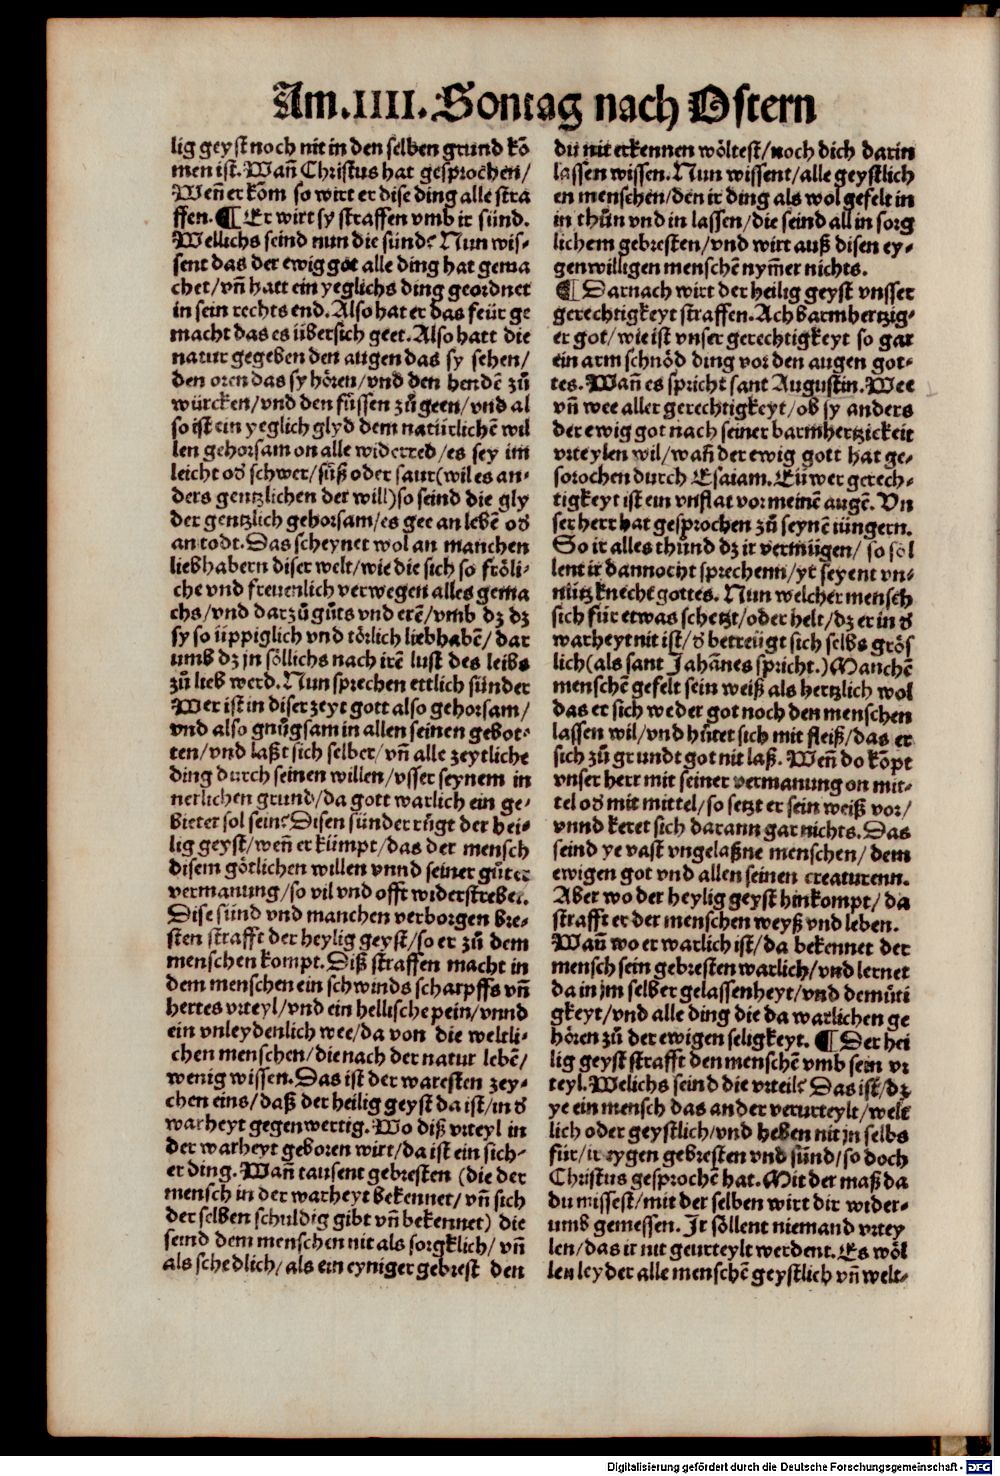 Am.IIII.Sontag nach Ostern
lig geyst noch nit in den selben grund kō
men ist. Wañ Christus hat gesprochen/
Weñ er kōm so wirt er dise ding alle stra
ffen. ¶ Er wirt sy straffen vmb ir sünd.
Wellichs seind nun die sünd? Nun wis⸗
sent das der ewig got alle ding hat gema
chet/vñ hatt ein yeglichs ding geordnet
in sein rechts end. Also hat er das feür ge
macht das es übersich geet. Also hatt die
natur gegeben den augen das sy sehen/
den oren das sy hören/vnd den hendē zů
würcken/vnd den füssen zů geen/vnd al
so ist ein yeglich glyd dem natürlichē wil
len gehorsam on alle widerred/es sey im
leicht oď schwer/süß oder saur(wil es an⸗
ders gentzlichen der will)so seind die gly
der gentzlich gehorsam/es gee an lebē oď
an todt. Das scheynet wol an manchen
liebhabern diser welt/wie die sich so fröli⸗
che vnd freuenlich verwegen alles gema
chs/vnd darzů gůts vnd erē/vmb dz dz
sy so üppiglich vnd törlich liebhabē/dar
umb dz jn söllichs nach irē lust des leibs
zů lieb werd. Nun sprechen ettlich sünder
Wer ist in diser zeyt gott also gehorsam/
vnd also gnůgsam in allen seinen gebot⸗
ten/vnd laßt sich selber/vñ alle zeytliche
ding durch seinen willen/vsser seynem in
nerlichen grund/da gott warlich ein ge⸗
bieter sol sein? Disen sünder rügt der hei⸗
lig geyst/weñ er kümpt/das der mensch
disem götlichen willen vnnd seiner gůten
vermanung/so vil vnd offt widerstrebet.
Dise sünd vnd manchen verborgen bre⸗
sten strafft der heylig geyst/so er zů dem
menschen kompt. Diß straffen macht in
dem menschen ein schwinds scharpffs vñ
hertes vrteyl/vnd ein hellische pein/vnnd
ein vnleydenlich wee/da von die weltli⸗
chen menschen/die nach der natur lebē/
wenig wissen. Das ist der waresten zey⸗
chen eins/daß der heilig geyst da ist/in ď
warheyt gegenwertig. Wo diß vrteyl in
der warheyt geboren wirt/da ist ein sich⸗
er ding. Wañ tausent gebresten (die der
mensch in der warheyt bekennet/vñ sich
der selben schuldig gibt vñ bekennet) die
seind dem menschen nit als sorgklich/vñ
als schedlich/als ein eyniger gebrest den
du nit erkennen wöltest/noch dich darin
lassen wissen. Nun wissent/alle geystlich
en menschen/den ir ding als wol gefelt in
in thůn vnd in lassen/die seind all in sorg
lichem gebresten/vnd wirt auß disen ey⸗
genwilligen menschē nym̃er nichts.
¶ Darnach wirt der heilig geyst vnsser
gerechtigkeyt straffen. Ach barmhertzig⸗
er got/wie ist vnser gerechtigkeyt so gar
ein arm schnöd ding vor den augen got⸗
tes. Wañ es spricht sant Augustin. Wee
vñ wee aller gerechtigkeyt/ob sy anders
der ewig got nach seiner barmhertzickeit
vrteylen wil/wañ der ewig gott hat ge⸗
sprochen durch Esaiam. Eüwer gerech⸗
tigkeyt ist ein vnflat vor meinē augē. Vn
ser herr hat gesprochen zů seynē iüngern.
So ir alles thůnd dz ir vermügen/ so söl
lent ir dannocht sprechenn/yr seyent vn⸗
nütz knecht gottes. Nun welcher mensch
sich für etwas schetzt/oder helt/dz er in ď
warheyt nit ist/ď betreügt sich selbs grös
lich(als sant Jahānes spricht.)Manchē
menschē gefelt sein weiß als hertzlich wol
das er sich weder got noch den menschen
lassen wil/vnd hůtet sich mit fleiß/das er
sich zů grundt got nit laß. Weñ do kōpt
vnser herr mit seiner vermanung on mit⸗
tel oď mit mittel/so setzt er sein weiß vor/
vnnd keret sich darann gar nichts. Das
seind ye vast vngelaßne menschen/ dem
ewigen got vnd allen seinen creaturenn.
Aber wo der heylig geyst hinkompt/ da
strafft er der menschen weyß vnd leben.
Wañ wo er warlich ist/da bekennet der
mensch sein gebresten warlich/vnd lernet
da in jm selber gelassenheyt/vnd demüti
gkeyt/vnd alle ding die da warlichen ge
hören zů der ewigen seligkeyt. ¶ Der hei
lig geyst strafft den menschē vmb sein vr
teyl. Welichs seind die vrteil? Das ist/dz
ye ein mensch das ander verurteylt/welt
lich oder geystlich/vnd heben nit jn selbs
für/ir eygen gebresten vnd sünd/so doch
Christus gesprochē hat. Mit der maß da
du missest/mit der selben wirt dir wider⸗
umb gemessen. Ir söllent niemand vrtey
len/das ir nit geurteylt werdent. Es wöl
len leyder alle menschē geystlich vñ welt⸗
Digitalisierung gefördert durch die Deutsche Forschungsgemeinschaft - DFG